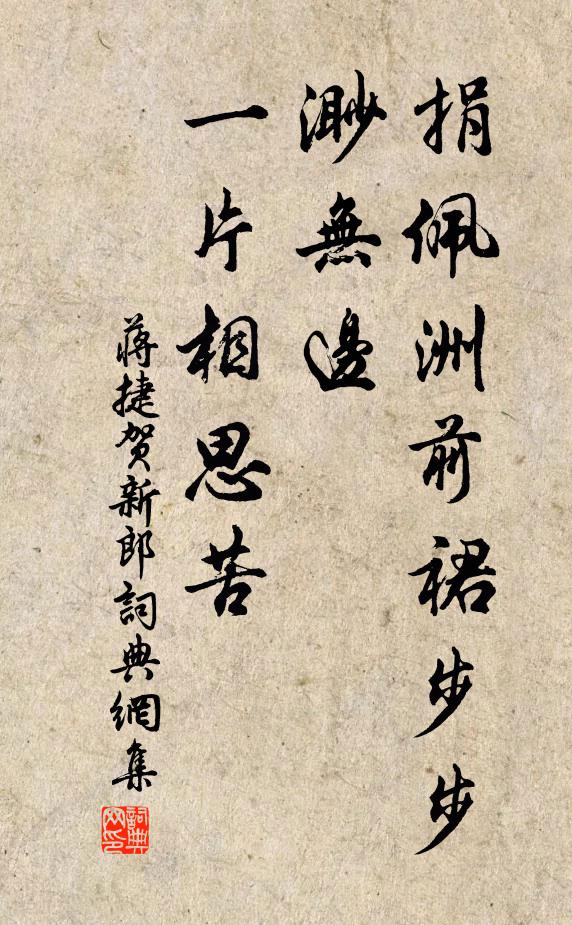 捐佩洲前裙步步
渺無邊
一片相思苦
蔣捷賀新郎詞典網集
詞典网印